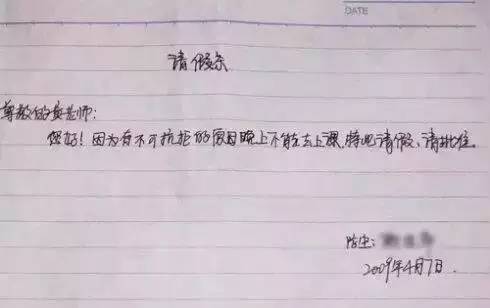 DATE
请假条
尊敬的老师:
您好！因为有不可抗拒的原因晚上不能去上课,特此请假,请批准.
2009年4月7日.